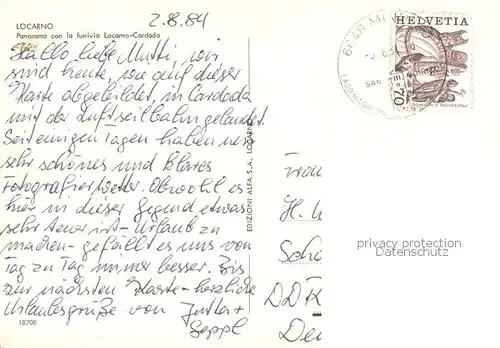 LOCARNO
Panorama con la funivia Locarno-Cardada
2.8.84
Hallo liebe Mutti, wir
sind heute, wie auf dieser
Karte abgebildet, in Cardada
mit der Luftseilbahn gelandet.
Seit einigen Tagen haben wir
sehr schönes und klares
Fotografierwetter. Obwohl es
hier in dieser Gegend etwas
sehr teuer ist - Urlaub zu
machen - gefällt es uns von
Tag zu Tag immer besser. Bis
zur nächsten Karte - herzliche
Urlaubsgrüße von Jutta +
Seppl
18708
EDIZIONI ALFA S.A. LOCARNO
HELVETIA
70
SAN
Frau
H.
DDR
privacy protection
Datenschutz